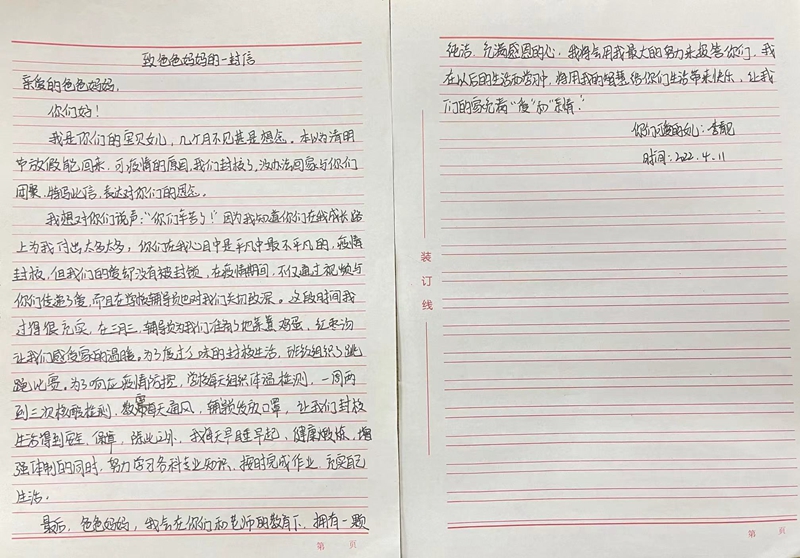 致爸爸妈妈的一封信
亲爱的爸爸妈妈，
你们好！
我是你们的宝贝女儿，几个月不见甚是想念。本以为清明
中放假能回来，可疫情的原因，我们封校了，没办法回家与你们
团聚，特写此信，表达对你们的思念。
我想对你们说声：“你们辛苦了！”因为我知道你们在我成长路
上为我付出太多太多，你们在我心目中是平凡中最不平凡的，疫情
封校，但我们的爱却没有被封锁，在疫情期间，不仅通过视频与
你们传递了爱，而且在学校辅导员也对我们关切致深。这段时间我
过得很充实，在三月三，辅导员为我们准备了地菜煮鸡蛋，红枣汤
让我们感受家的温暖。为了度过乏味的封校生活，班级组织了跳
跳比赛。为了响应疫情防控，学校每天组织体温检测，一周两
到三次核酸检测，教室每天通风，辅导员发放口罩，让我们封校
生活得到安全、保障，除此之外，我每天早睡早起，健康锻炼，增
强体制的同时，努力学习各科专业知识，按时完成作业，充实自己
生活。
最后，爸爸妈妈，我会在你们和老师的教育下，拥有一颗
第 页
纯洁、充满感恩的心，我将会用我最大的努力来报答你们，我
在以后的生活而学习中，将用我的智慧给你们生活带来快乐，让我
们的家充满“爱”和“亲情”！
你们可爱的女儿：李靓
时间：2022.4.11
装
订
线
第 页